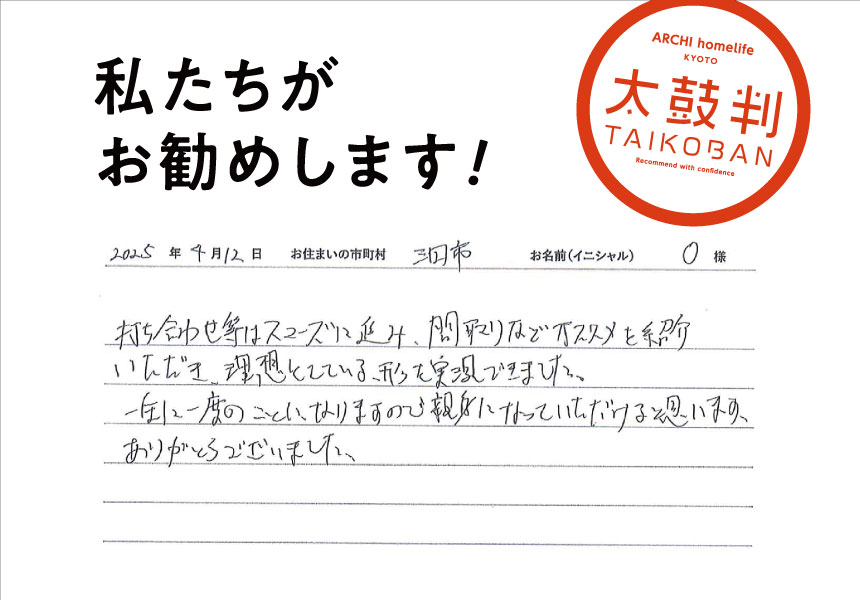 私たちが
お勧めします!
ARCHI homelife
KYOTO
太鼓判
TAIKOBAN
Recommend with confidence
2025 年 4 月 12 日 お住まいの市町村 三田市 お名前(イニシャル) O 様
打ち合わせ等はスムーズに進み、間取りなどオススメを紹介
いただき、理想としている形を実現できました。
一生に一度のことになりますので親身になっていただけると思います、
ありがとうございました。